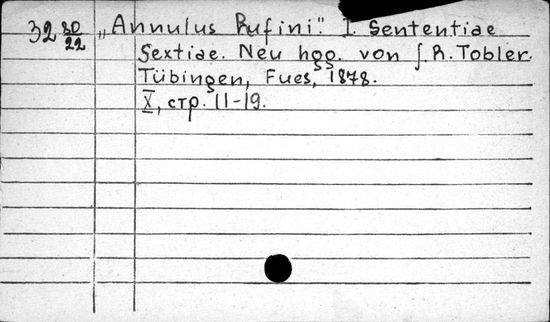 32 80/22 „Annulus Rufini.“ I. Sententiae
Sextiae. Neu hgg. von J. R. Tobler.
Tübingen, Fues, 1878.
X, стр. 11-19.